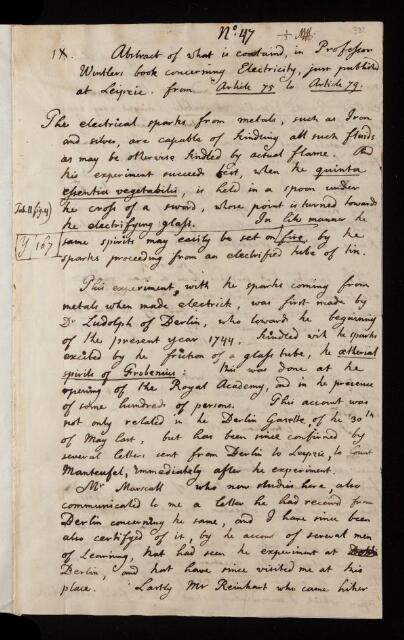 No. 47
322
IX. Abstract of what is containd, in Professor
Winklers book concerning Electricity, just published
at Leipzic. from Article 75 to Article 79.
The electrical sparks from metals, such as Iron
and silver, are capable of kindling all such fluids
as may be otherwise kindled by actual flame. And
his experiment succeeds best, when the quinta
essentia vegetabilis, is held in a spoon under
Tab. II fig. 4)
the cross of a sword, whose point is turned towards
the electrifying glass. In like manner the
167
same spirits may easily be set on fire, by the
sparks proceeding from an electrified tube of tin.
This experiment, with the sparks coming from
metals when made electrick, was first made by
Dr Ludolph of Berlin, who towards the beginning
of the present year 1744. kindled with the sparks
excited by the friction of a glass tube, the ætherial
spirits of Frobenius: this was done at the
opening of the Royal Academy, and in the presence
of some hundreds of persons. This account was
not only related in the Berlin Gazette, of the 30th
of May last, but has been since confirmed by
several letters sent from Berlin to Leipzic, to Count
Manteufel, immediately after the experiment.
Mr. Marscall who now studies here, also
communicated to me a letter he had receivd from
Berlin concerning the same, and I have since been
also certifyed of it, by the account of several men
of Learning, that had seen the experiment at
Berlin, and that have since visited me at this
place. Lastly Mr Reinhart who came hither